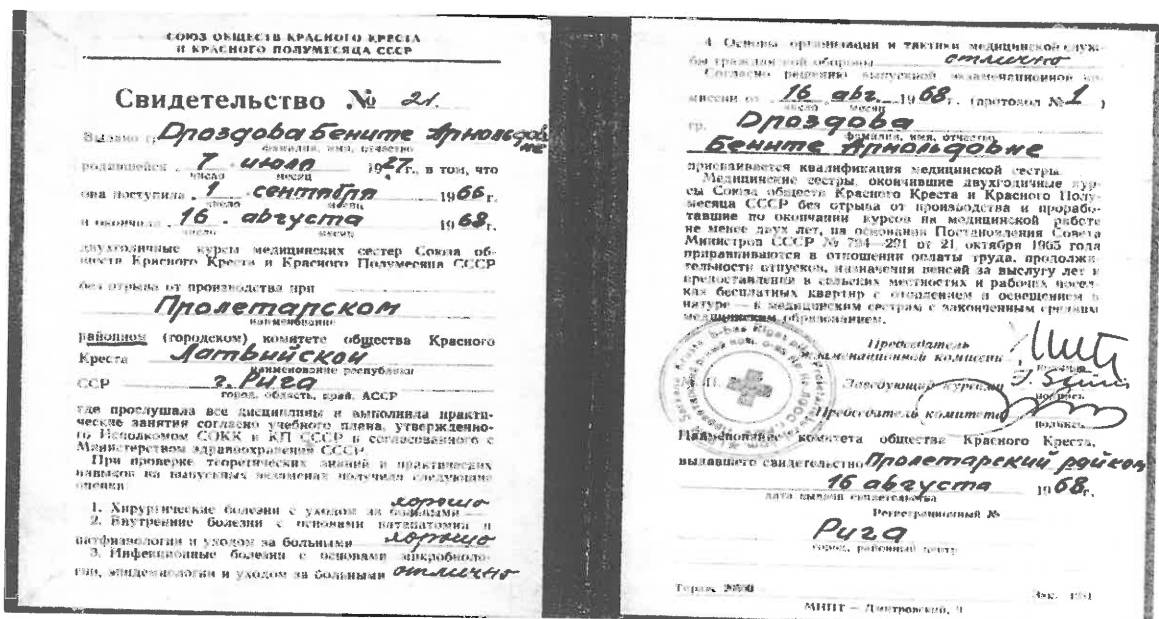 СОЮЗ ОБЩЕСТВ КРАСНОГО КРЕСТА
И КРАСНОГО ПОЛУМЕСЯЦА СССР
Свидетельство № 21.
Выдано гр. Дроздова Бените Арнольдовне
фамилия, имя, отчество
родившейся 7 июля 1927 г., в том, что
число месяц
она поступила 1 сентября 1966 г.
число месяц
и окончила 16. августа 1968.
число месяц
двухгодичные курсы медицинских сестер Союза об-
ществ Красного Креста и Красного Полумесяца СССР
без отрыва от производства при
Пролетарском
наименование
районном (городском) комитете общества Красного
Креста Латвийской
наименование республики
ССР г. Рига
город, область, край, АССР
где прослушала все дисциплины и выполнила практи-
ческие занятия согласно учебного плана, утвержденно-
го Исполкомом СОКК и КП СССР и согласованного с
Министерством здравоохранения СССР.
При проверке теоретических знаний и практических
навыков на выпускных экзаменах получила следующие
оценки:
1. Хирургические болезни с уходом за больными хорошо
2. Внутренние болезни с основами патанатомии и
патфизиологии и уходом за больными хорошо
3. Инфекционные болезни с основами микробиоло-
гии, эпидемиологии и уходом за больными отлично
4. Основы организации и тактики медицинской служ-
бы гражданской обороны отлично
Согласно решению выпускной экзаменационной ко-
миссии от 16 авг. 1968 г. (протокол № 1)
число месяц
гр. Дроздова
фамилия, имя, отчество
Бените Арнольдовне
присваивается квалификация медицинской сестры.
Медицинские сестры, окончившие двухгодичные кур-
сы Союза обществ Красного Креста и Красного Полу-
месяца СССР без отрыва от производства и прорабо-
тавшие по окончании курсов на медицинской работе
не менее двух лет, на основании Постановления Совета
Министров СССР № 794—291 от 21 октября 1965 года
приравниваются в отношении оплаты труда, продолжи-
тельности отпусков, назначения пенсий за выслугу лет и
предоставления в сельских местностях и рабочих посел-
ках бесплатных квартир с отоплением и освещением в
натуре — к медицинским сестрам с законченным средним
медицинским образованием.
Председатель
экзаменационной комиссии
подпись
Заведующий курсами
подпись
Председатель комитета
подпись
Наименование комитета общества Красного Креста,
выдавшего свидетельство Пролетарский райком
16 августа 1968 г.
дата выдачи свидетельства
Регистрационный №
Рига
город, районный центр
Тираж
Зак.
МИПТ — Дмитровский, 9